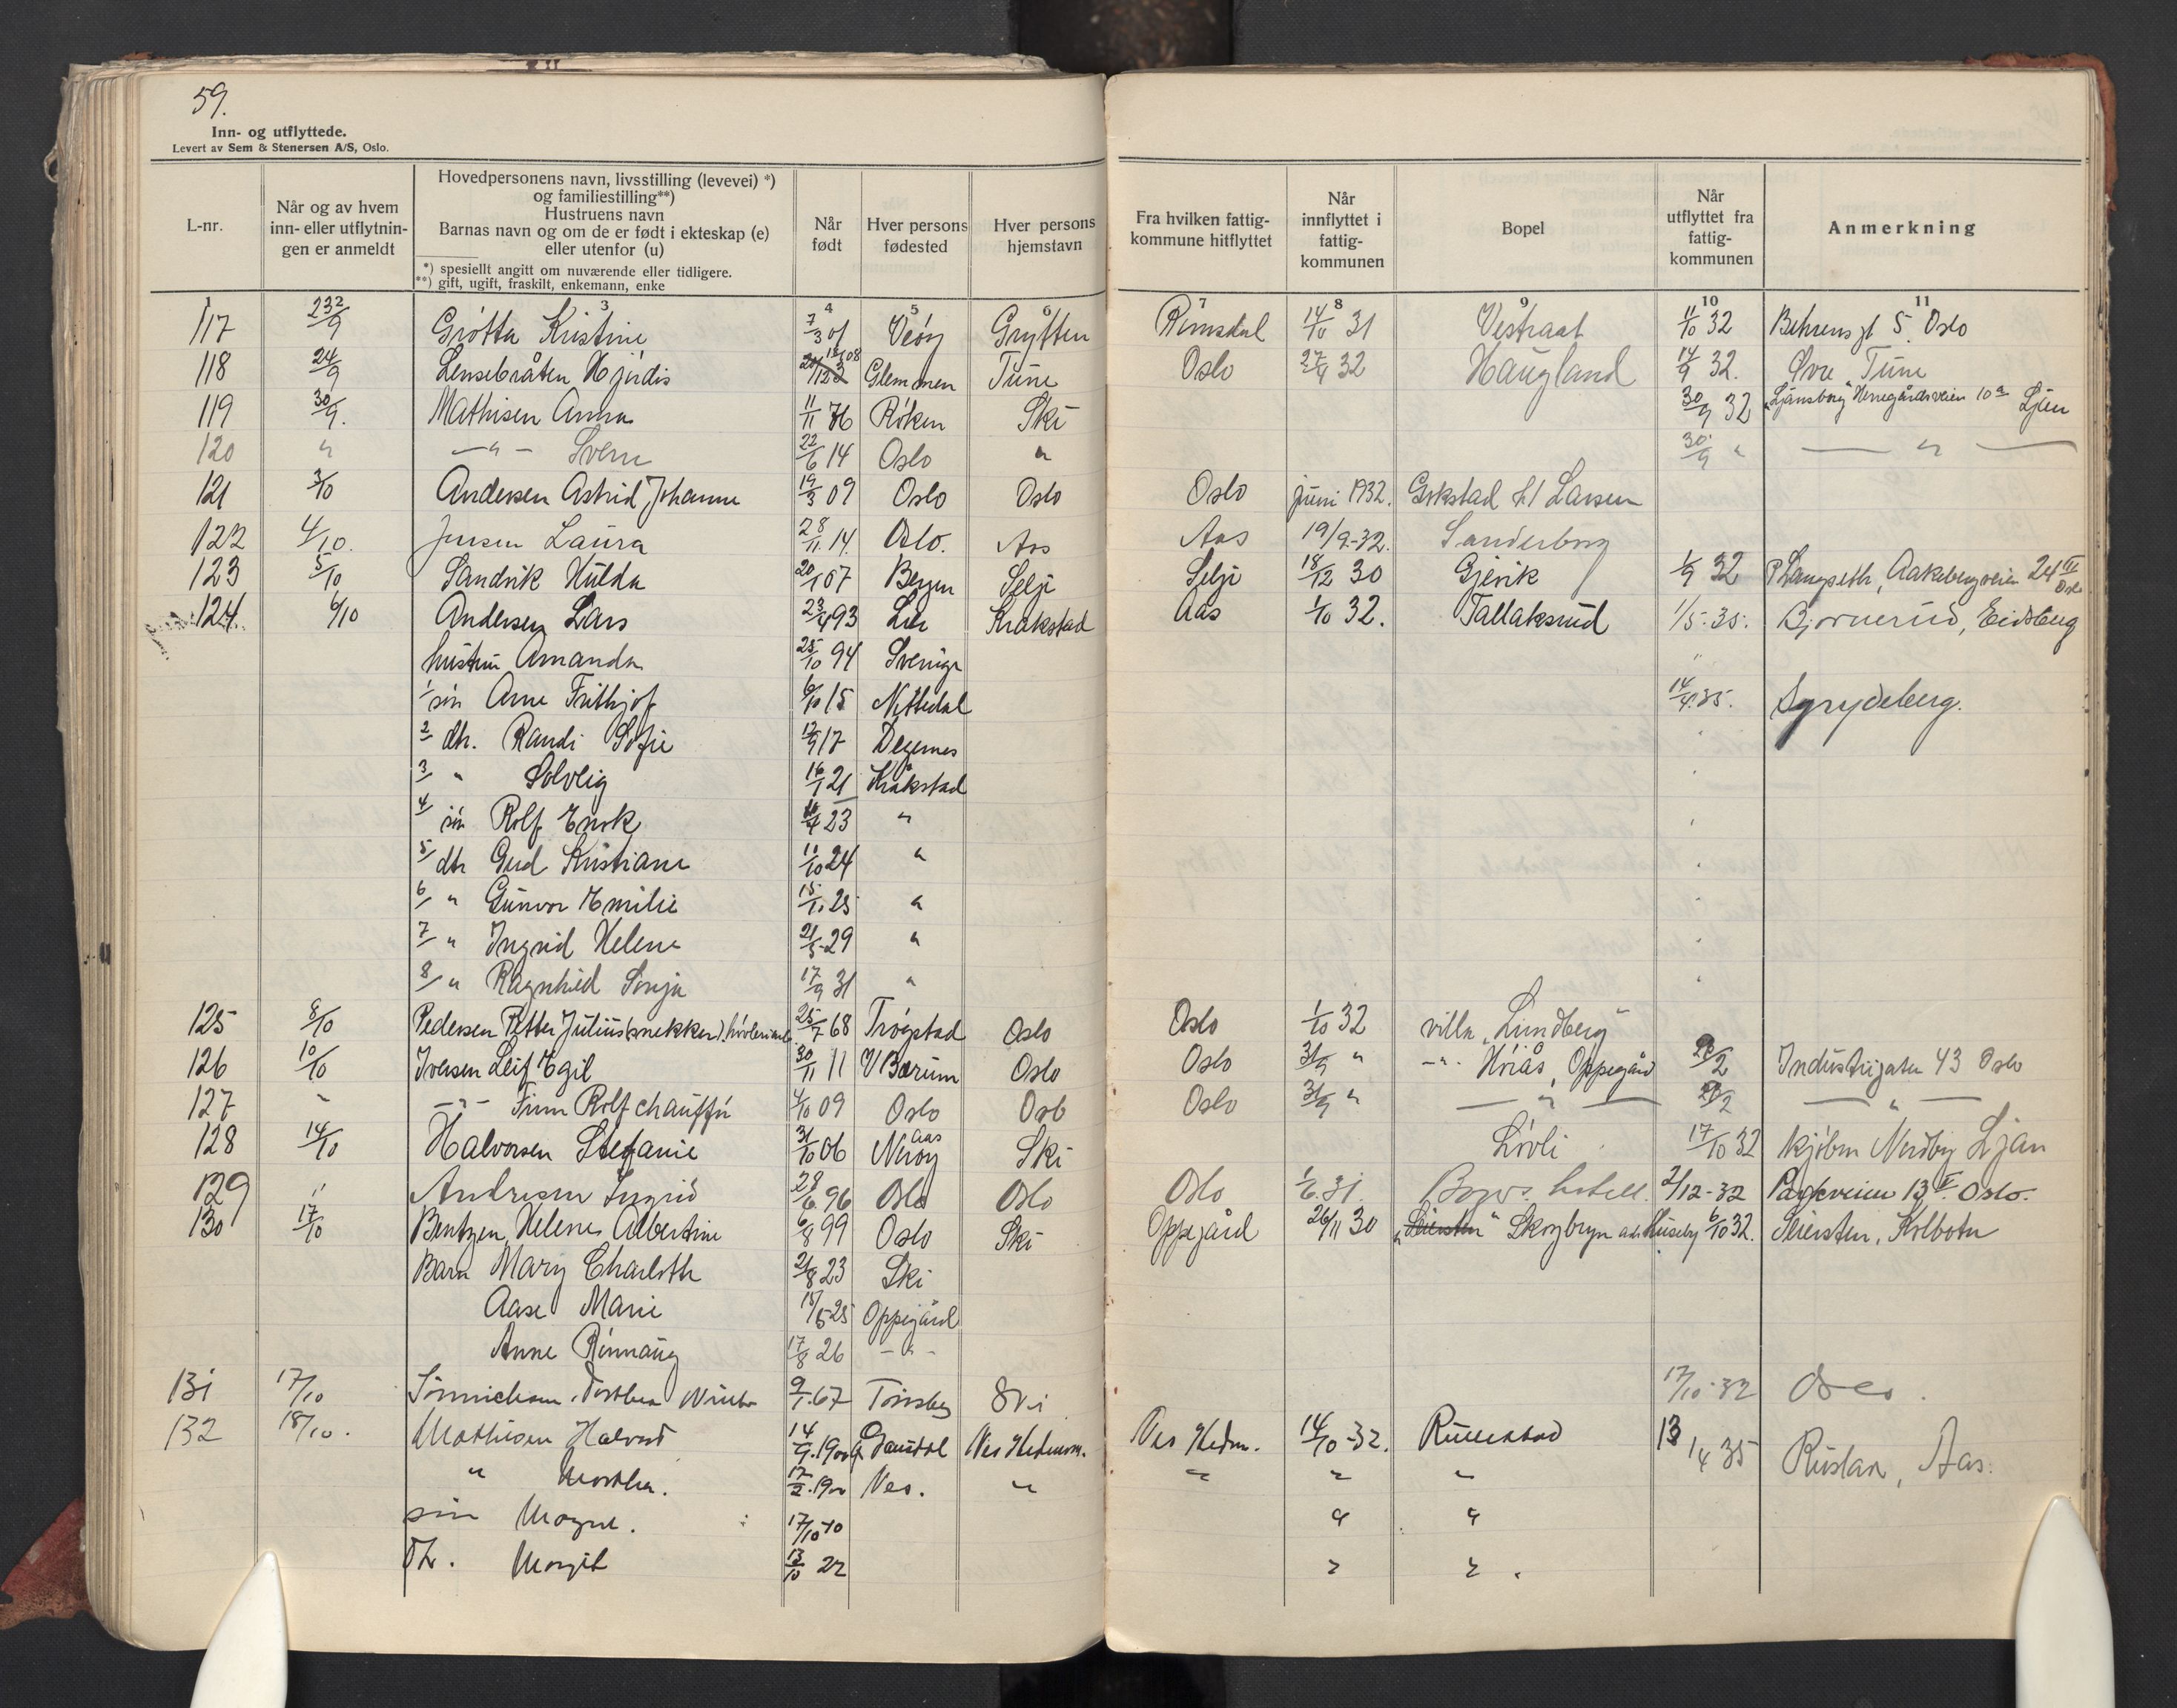 59.
Inn- og utflyttede.
Levert av Sem & Stenersen A/S, Oslo.
L-nr. | Når og av hvem inn- eller utflytningen er anmeldt | Hovedpersonens navn, livsstilling (levevei) *) og familiestilling**) Hustruens navn Barnas navn og om de er født i ekteskap (e) eller utenfor (u) *) spesiellt angitt om nuværende eller tidligere. **) gift, ugift, fraskilt, enkemann, enke | Når født | Hver persons fødested | Hver persons hjemstavn | Fra hvilken fattigkommune hitflyttet | Når innflyttet i fattigkommunen | Bopel | Når utflyttet fra fattigkommunen | Anmerkning
1 2 3 4 5 6 7 8 9 10 11
117 23/9 Grøtta Kristine 7/3 01 Veøy Grytten Romsdal 14/10 31 Vestraat 11/10 32 Behrensgt 5 Oslo
118 24/9 Lensebråten Hjørdis 08 Glemmen Tune Oslo 27/4 32 Haugland 14/9 32. Øvre Tune
119 30/9. Mathisen Anna 11/11 76 Røken Ski 30/9 32 "Ljansborg" Herregårdsveien 10a Ljan
120 " -"- Sverre 22/6 14 Oslo " 30/9 " — " —
121 3/10 Andersen Astrid Johanne 19/3 09 Oslo Oslo Oslo juni 1932. Gokstad h/ Larsen
122 4/10. Jensen Laura 28/11. 14. Oslo. Aas Aas 19/9-32. Sanderborg
123 5/10 Sandvik Hulda 20/1 07 Bergen Selje Selje 18/12 30 Gjevik 1/9 32 P Langseth, Aakebergveien 24 III Oslo
124. 6/10 Andersen Lars 23/4 93 Lier Kråkstad Aas 1/10 32. Tallaksrud 1/5-35. Bjørnerud, Eidsberg
hustru Amanda 25/10 94 Sverige "
1/ søn Arne Frithjof 6/10 15 Nittedal 14/4.35. Spydeberg.
2/ dtr. Randi Sofie 12/9 17 Degernes
3/ " Solveig 16/1 21 Kråkstad
4/ søn Rolf Enok 16/4 23 "
5/ dtr Gerd Kristiane 11/10 24 "
6/ " Gunvor Emilie 15/1. 25 "
7/ " Ingrid Helene 21/5-29 "
8/ " Ragnhild Sonja 17/9 31 "
125 8/10 Pedersen Petter Julius (snekker), høvleriarb. 25/7 68 Trøgstad Oslo Oslo 1/10 32 villa "Lundberg"
126 10/10 Iversen Leif Egil 30/11 11 V Bærum Oslo Oslo 31/9 " -"- Høiås, Oppegård 28/2 Industrigaten 43 Oslo
127 " -"- Finn Rolf chauffør 4/10 09 Oslo Oslo Oslo 31/9 " — " — 28/2 — " —
128 14/10 Halvorsen Stefanie 31/10 06 Nerøy Aas Ski Løvli 17/10 32 kjøbm Nordby Ljan
129 " Andresen Ingrid 28/6. 96 Oslo Oslo Oslo 1/6. 31. hotell. 2/12-32 Parkveien 13 V. Oslo.
130 17/10 Bentzen, Helene Albertine 6/8 99 Oslo Ski Oppegård 26/11 30 "Seiersten" Skogbryn adr. Huseby 6/10 32. Seiersten, Kolbotn
Barn Mary Charlotte 21/8 23 Ski
Aase Marie 15/5 25 Oppegård
Anne Rønnaug 17/8 26 -"-
131 17/10 Sønnichsen, Dorthea Winter 9/1. 67 Tønsberg Ski 17/10-32 Oslo.
132 18/10. Mathisen Halvard 14/9. 1900 Ø Gausdal Nes Hedemn. Nes Hedm. 14/10-32. Rullestad 13/4 35 Rustan, Aas.
" Marthea. 17/2. 1900 Nes. " " " "
søn Magne. 17/10 20 " "
Dtr. Margit 13/10 22 " "